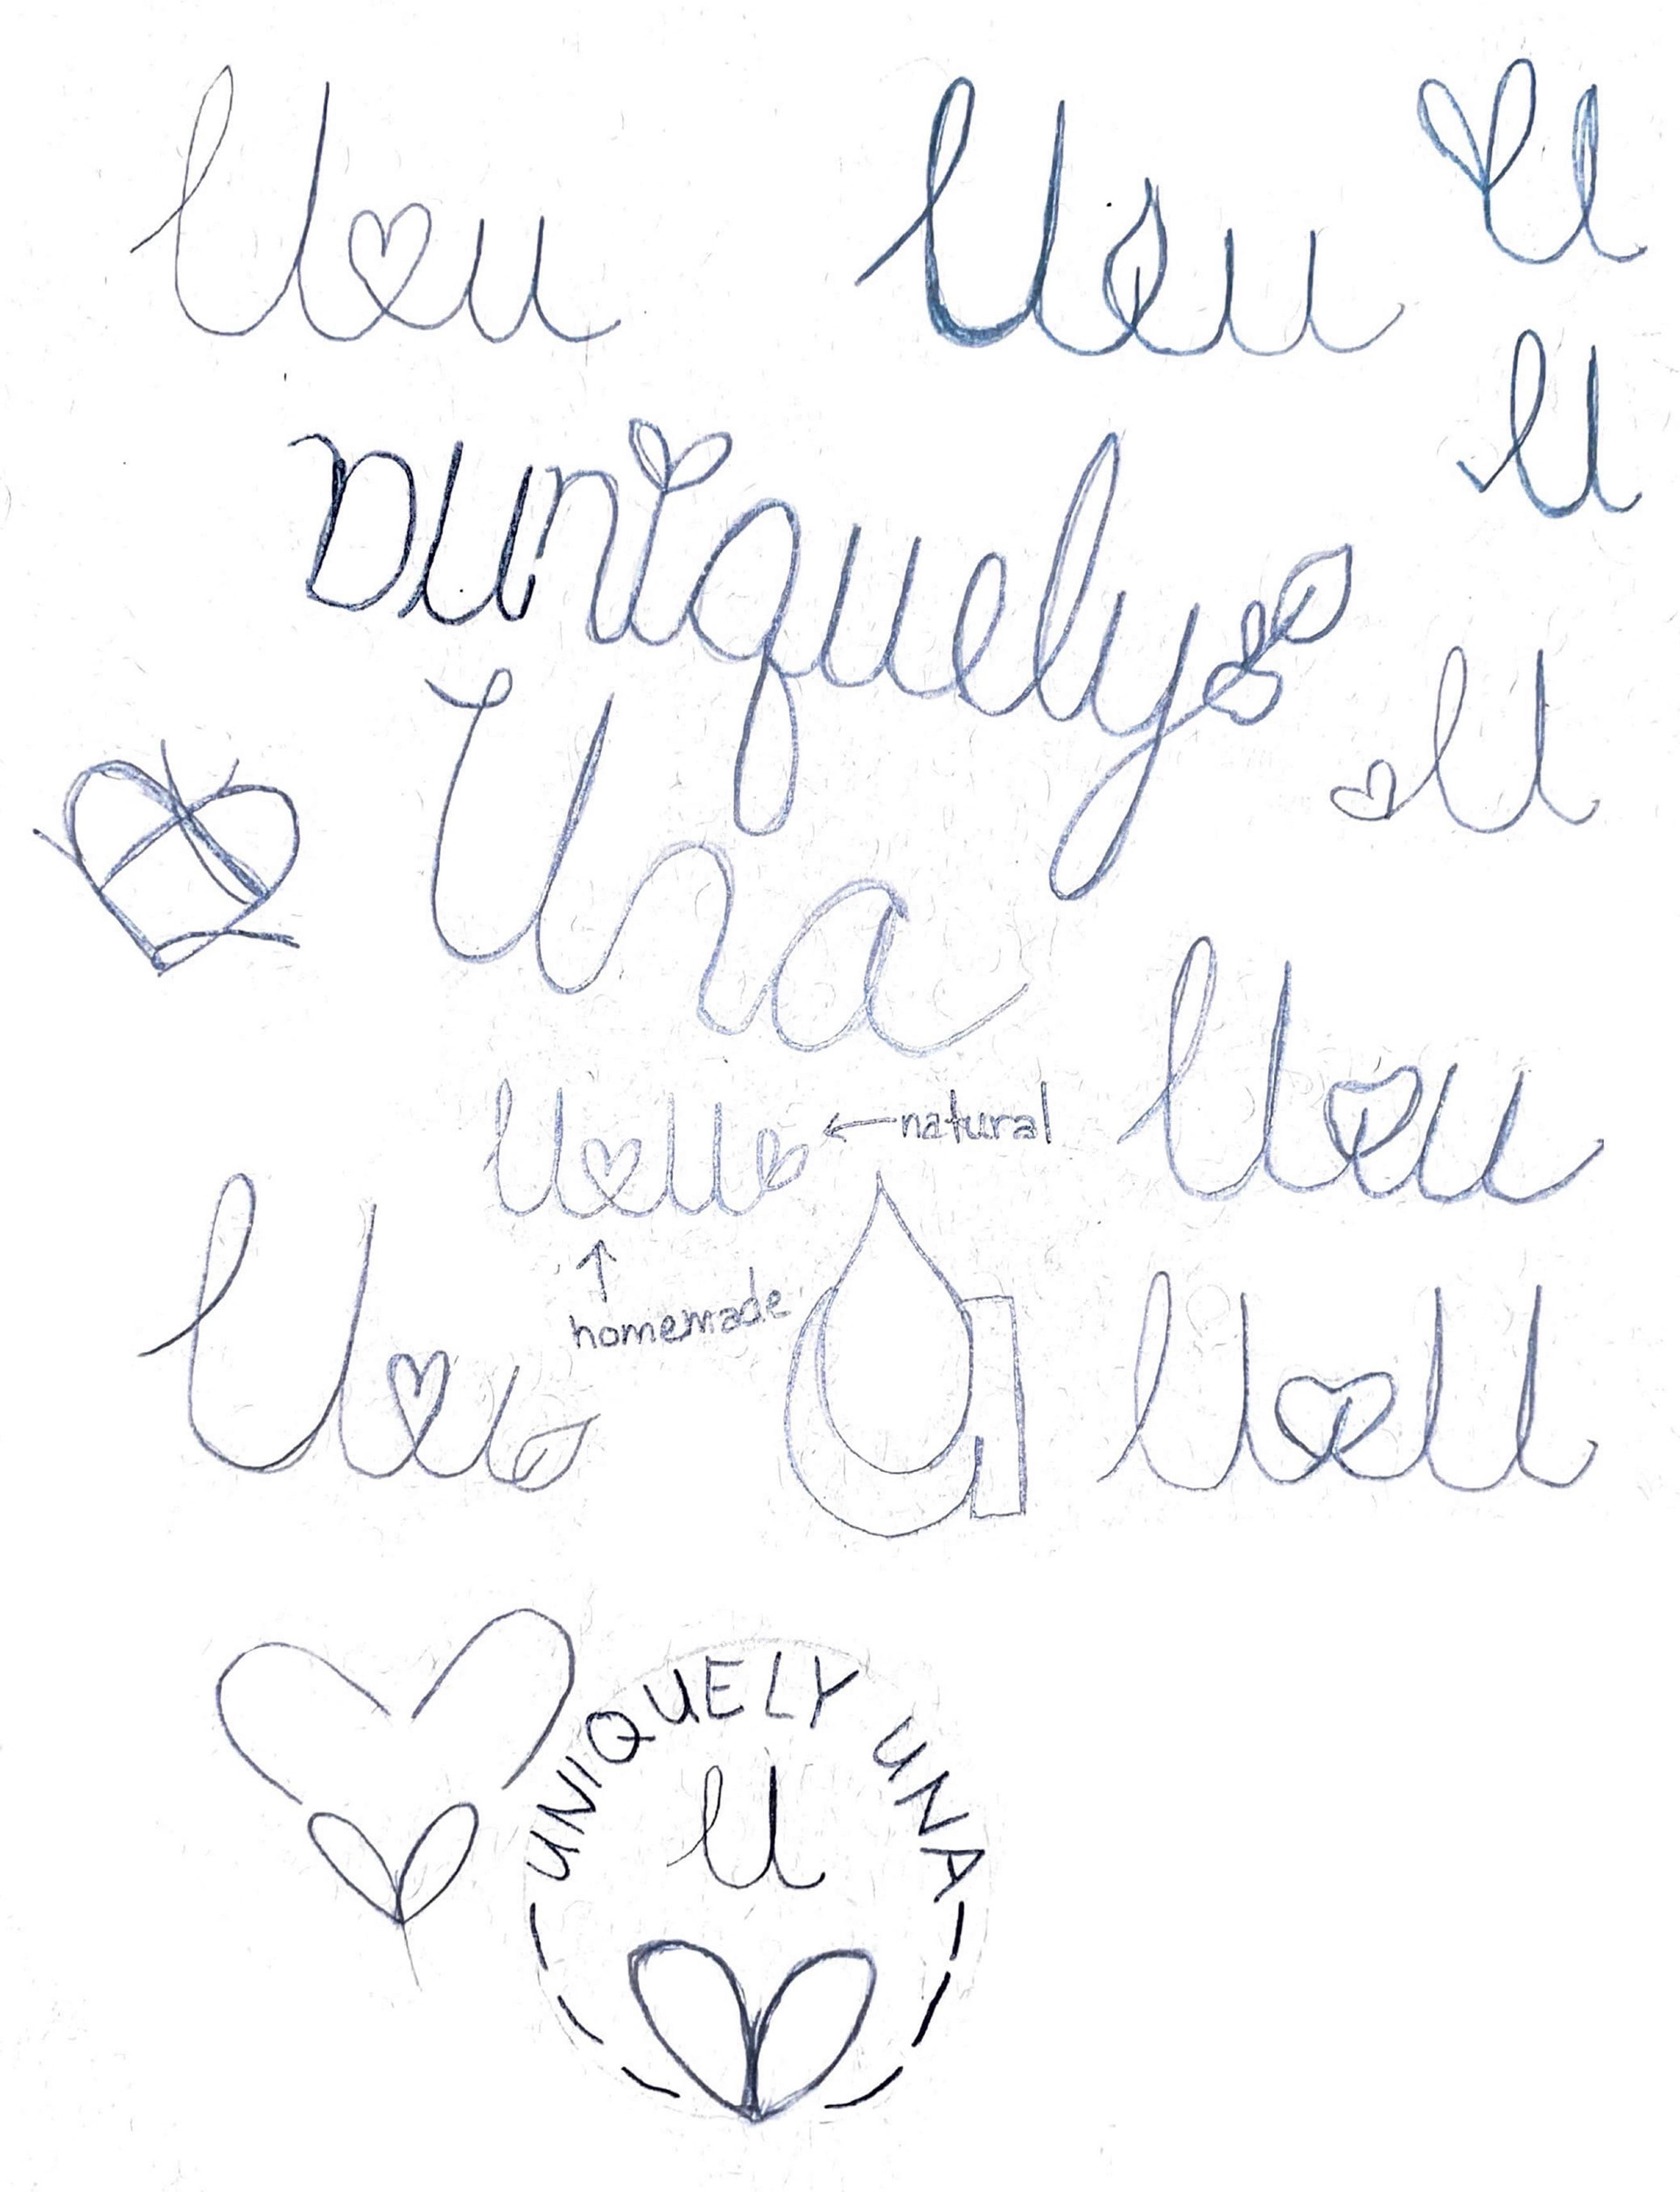 U u
U u
U
U
uniquely
U
Una
U u
U U
← natural
↑
homemade
U u
U U
UNIQUELY UNA
U